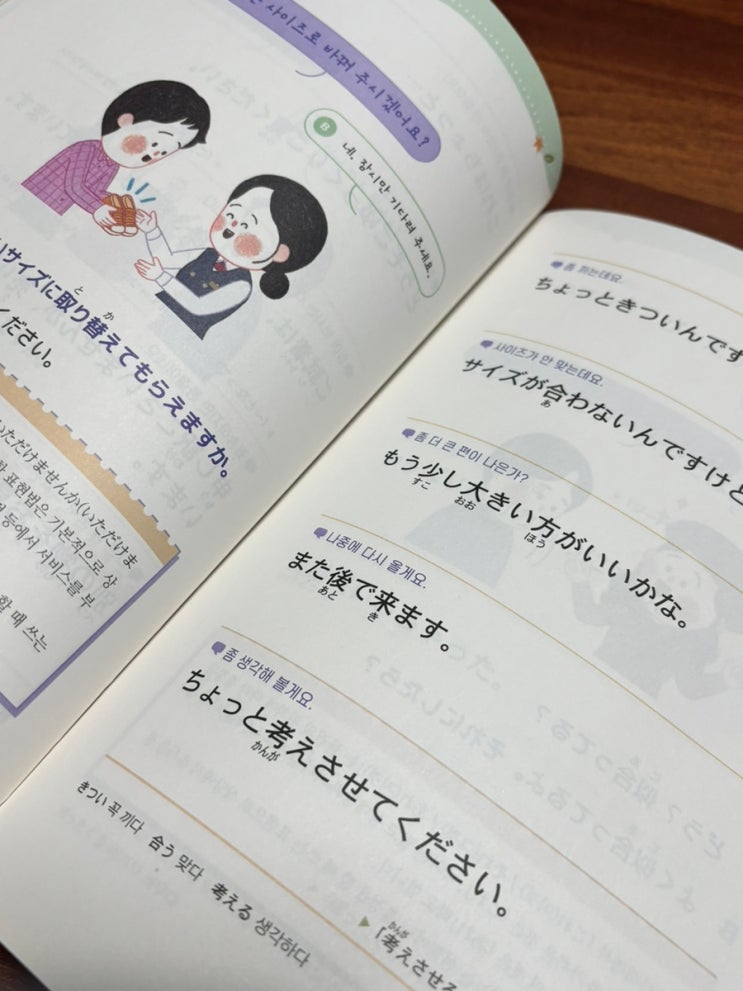 사이즈로 바꿔 주시겠어요?
B 네, 잠시만 기다려 주세요.
サイズに取り替えてもらえますか。
と か
ください。
いただけませんか(いただけま
표현법은 기본적으로 상
등에서 서비스를 부
할 때 쓰는
좀 끼는데요.
ちょっときついんです
사이즈가 안 맞는데요.
サイズが合わないんですけど
あ
좀 더 큰 편이 나은가?
もう少し大きい方がいいかな。
すこ おお ほう
나중에 다시 올게요.
また後で来ます。
あと き
좀 생각해 볼게요.
ちょっと考えさせてください。
かんが
きつい 꼭 끼다 合う 맞다 考える 생각하다
かんが
▶ 「考えさせる